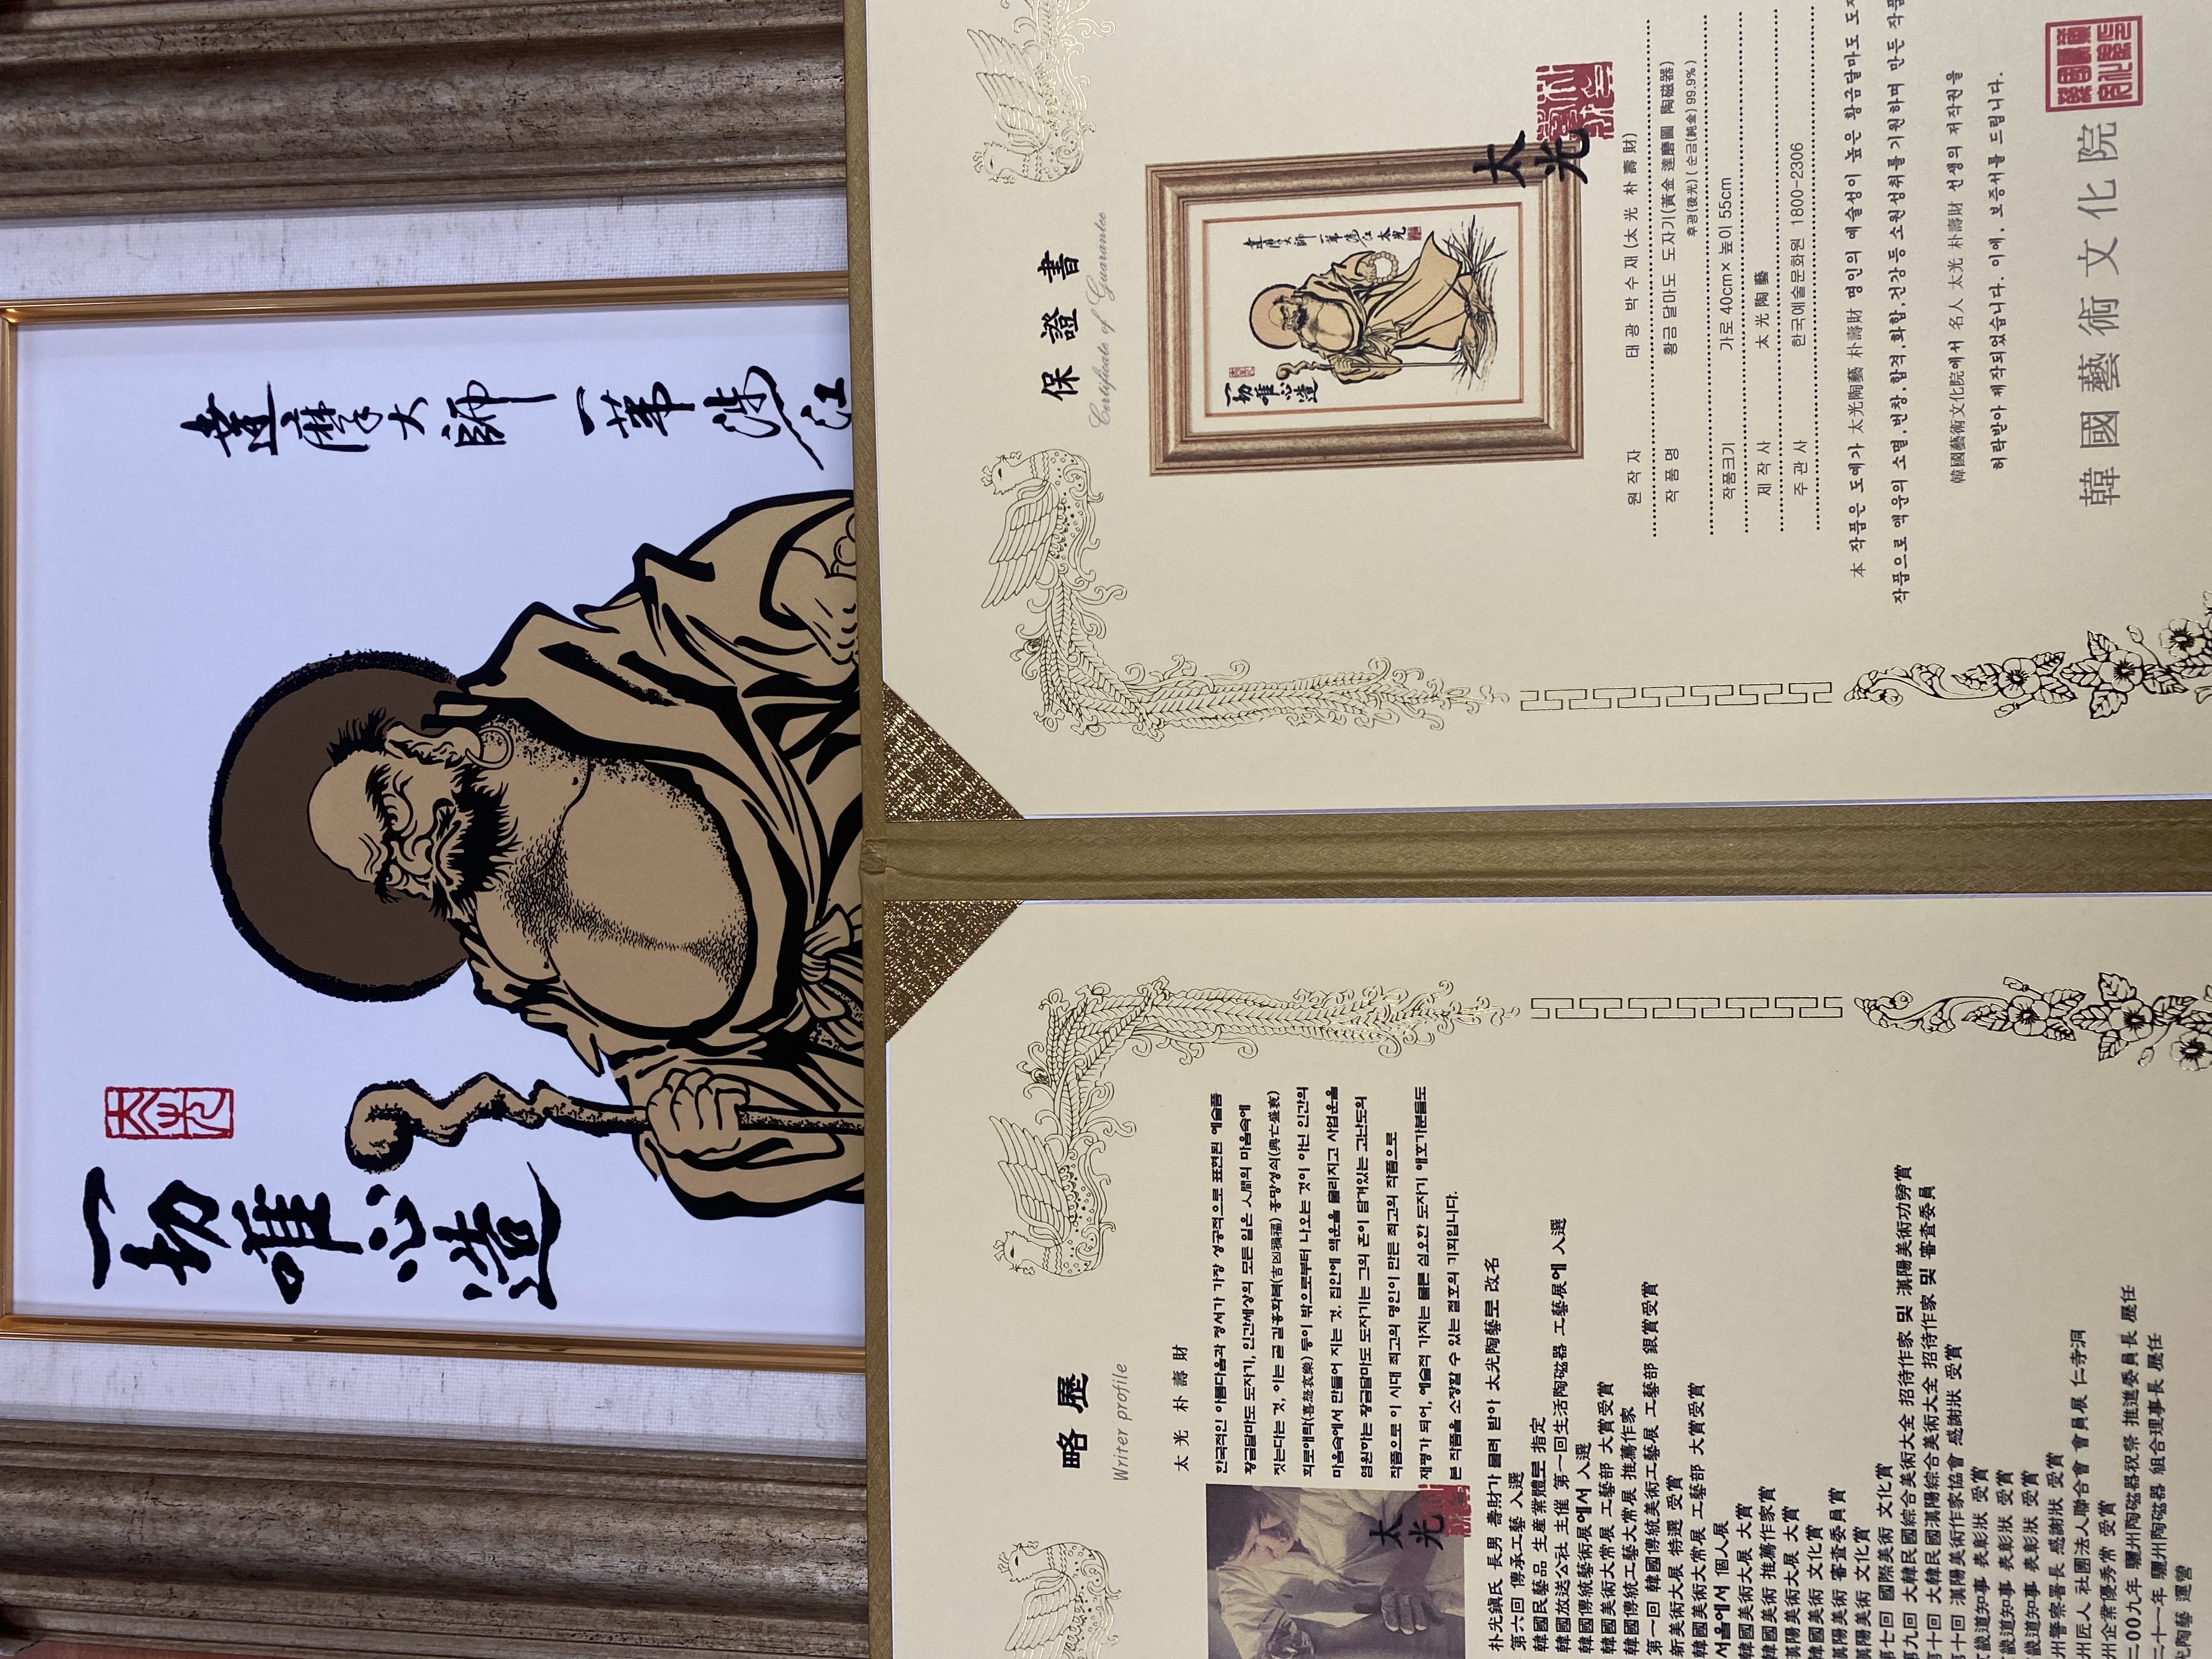 一切唯心造
達摩大師 一葦渡江
保證書
Certificate of Guarantee
一切唯心造
達摩大師 一葦渡江 太光
太光
원작자 태광 박수재 (太光 朴壽財)
작품명 황금 달마도 도자기(黃金 達磨圖 陶磁器)
후광(後光) ( 순금(純金) 99.9% )
작품크기 가로 40cm× 높이 55cm
제작사 太光陶藝
주관사 한국예술문화원 1800-2306
本 작품은 도예가 太光陶藝 朴壽財 명인의 예술성이 높은 황금달마도
작품으로 액운의 소멸, 번창, 합격, 화합, 건강등 소원성취를 기원하며 만든
韓國藝術文化院에서 名人 太光 朴壽財 선생의 저작권을
허락받아 제작되었습니다. 이에, 보증서를 드립니다.
韓國藝術文化院
略歷
Writer profile
太光 朴壽財
한국적인 아름다움과 정서가 가장 성공적으로 표현된 예술품
황금달마도 도자기, 인간세상의 모든 일은 人間의 마음속에
짓는다는 것, 이는 곧 길흉화복(吉凶禍福) 흥망성쇠(興亡盛衰)
희로애락(喜怒哀樂) 등이 밖으로부터 나오는 것이 아닌 인간의
마음속에서 만들어 지는 것. 집안에 액운을 물리치고 사업운을
염원하는 황금달마도 도자기는 그의 혼이 담겨있는 고난도의
작품으로 이 시대 최고의 명인이 만든 최고의 작품으로
재평가 되어, 예술적 가치는 물론 심오한 도자기 애호가분들도
본 작품을 소장할 수 있는 절호의 기회입니다.
太光
朴光鎭氏 長男 壽財가 물려 받아 太光陶藝로 改名
第六回 傳承工藝 入選
韓國民藝品 生産業體로 指定
韓國放送公社 主催 第一回生活陶磁器 工藝展에 入選
韓國傳統藝術展에서 入選
韓國美術大常展 工藝部 大賞受賞
韓國傳統工藝大常展 推薦作家
第一回 韓國傳統美術工藝展 工藝部 銀賞受賞
新美術大展 特選 受賞
韓國美術大常展 工藝部 大賞受賞
서울에서 個人展
韓國美術大展 大賞
韓國美術 推薦作家賞
漢陽美術大展 大賞
韓國美術 文化賞
漢陽美術 審査委員賞
漢陽美術 文化賞
第七回 國際美術 文化賞
第九回 大韓民國綜合美術大全 招待作家 및 漢陽美術功勞賞
第十回 大韓民國漢陽綜合美術大全 招待作家 및 審査委員
第十回 漢陽美術作家協會 感謝狀 受賞
畿道知事 表彰狀 受賞
畿道知事 表彰狀 受賞
畿道知事 表彰狀 受賞
州警察署長 感謝狀 受賞
州匠人 社團法人聯合會 會員展 仁寺洞
州企業優秀常 受賞
二00九年 驪州陶磁器祝祭 推進委員長 歷任
二十一年 驪州陶磁器 組合理事長 歷任
光陶藝 運營